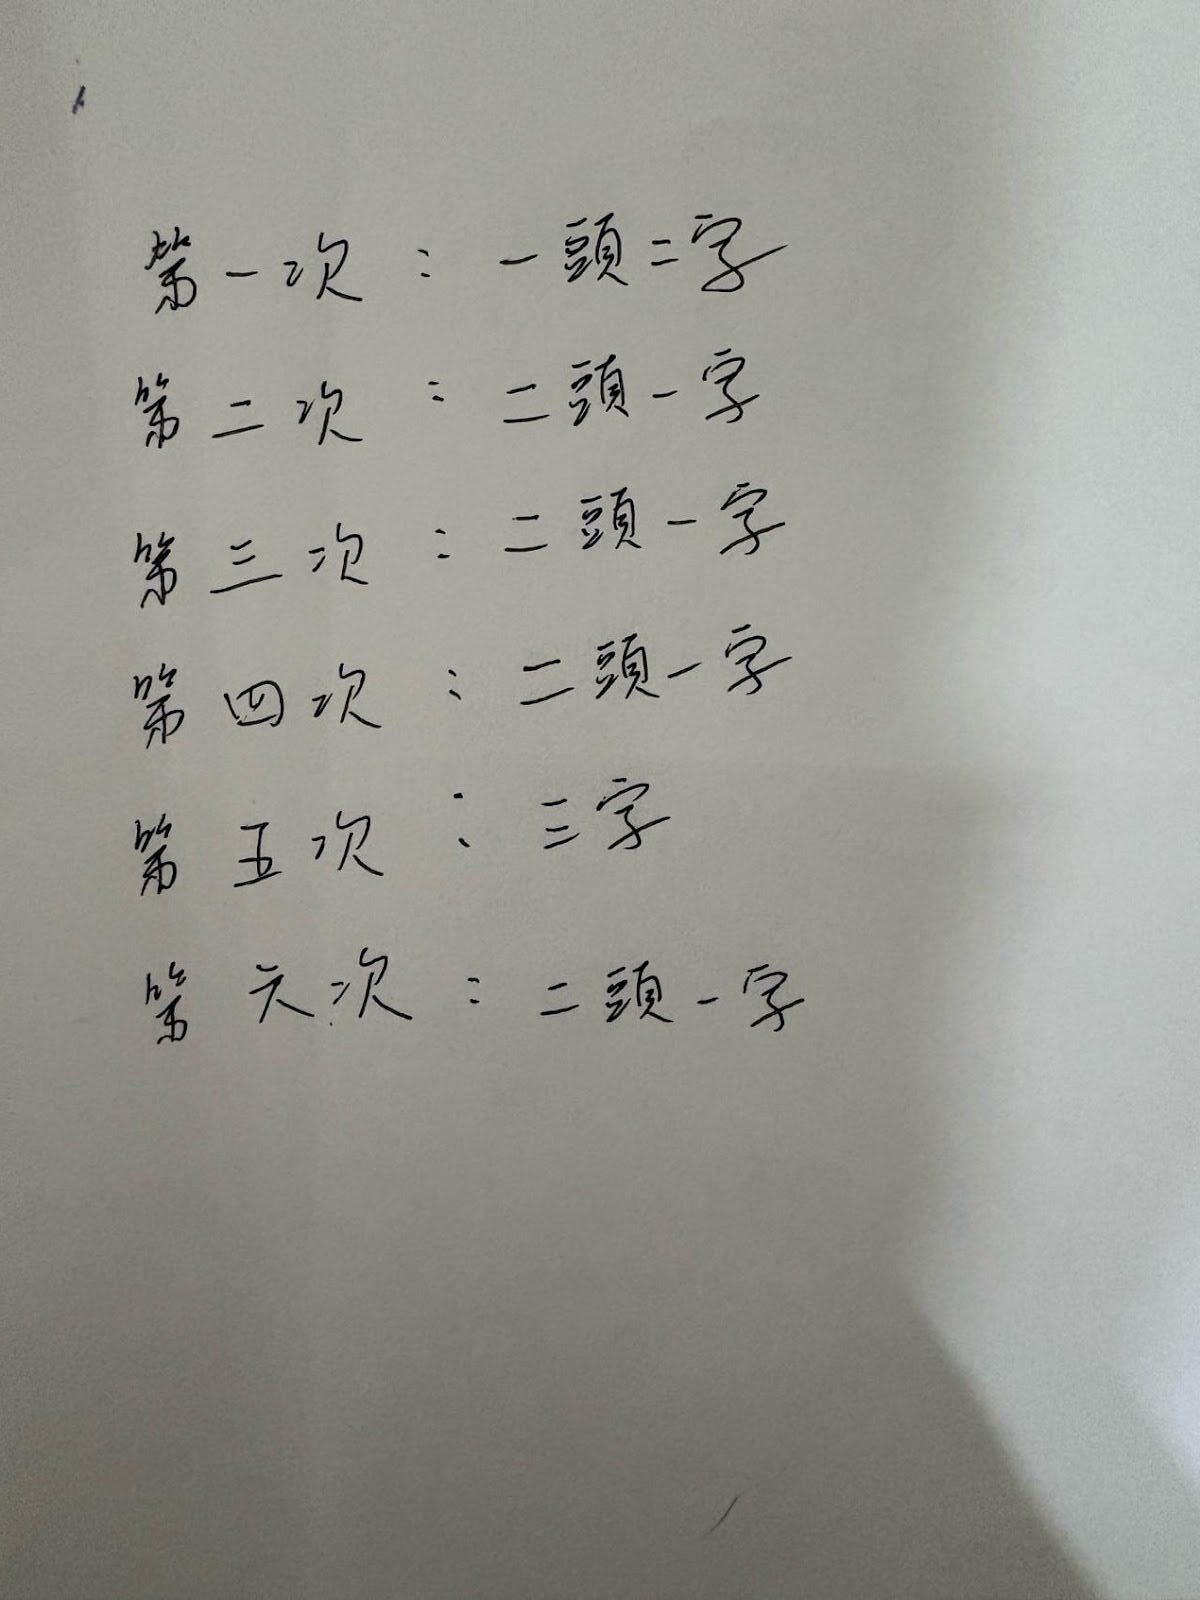 第一次：一頭二字
第二次：二頭一字
第三次：二頭一字
第四次：二頭一字
第五次：三字
第六次：二頭一字